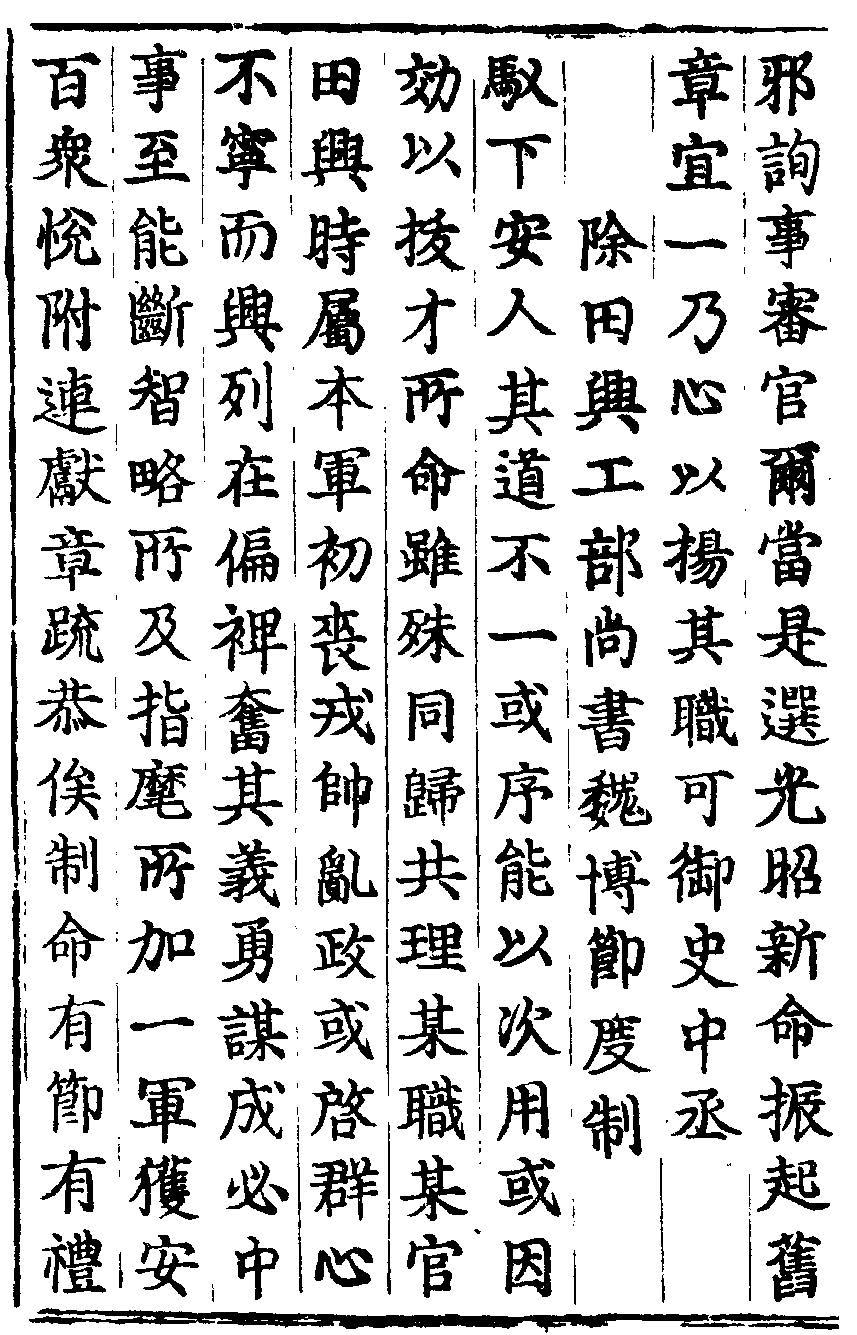 邪詢事審官爾當是選光昭新命振起舊
章宜一乃心以揚其職可御史中丞
除田興工部尚書魏博節度制
馭下安人其道不一或序能以次用或因
効以拔才所命雖殊同歸共理某職某官
田興時屬本軍初喪戎帥亂政或啓群心
不寧而興列在偏裨奮其義勇謀成必中
事至能斷智略所及指麾所加一軍獲安
百衆悅附連獻章疏恭俟制命有節有禮